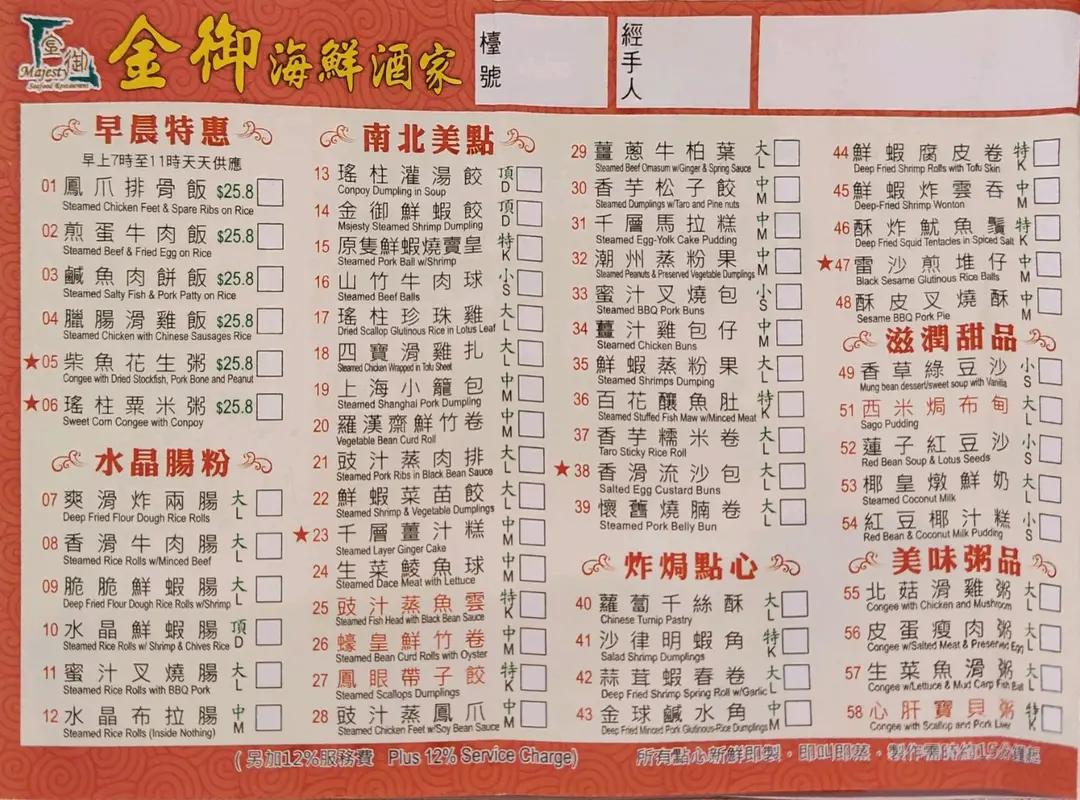 金御
Majesty
Seafood Restaurant
金御海鮮酒家
檯號
經手人
早晨特惠
早上7時至11時天天供應
01 鳳爪排骨飯 $25.8
Steamed Chicken Feet & Spare Ribs on Rice
02 煎蛋牛肉飯 $25.8
Steamed Beef & Fried Egg on Rice
03 鹹魚肉餅飯 $25.8
Steamed Salty Fish & Pork Patty on Rice
04 臘腸滑雞飯 $25.8
Steamed Chicken with Chinese Sausages Rice
★05 柴魚花生粥 $25.8
Congee with Dried Stockfish, Pork Bone and Peanut
★06 瑤柱粟米粥 $25.8
Sweet Corn Congee with Conpoy
水晶腸粉
07 爽滑炸兩腸 大L
Deep Fried Flour Dough Rice Rolls
08 香滑牛肉腸 大L
Steamed Rice Rolls w/Minced Beef
09 脆脆鮮蝦腸 大L
Deep Fried Flour Dough Rice Rolls w/Shrimp
10 水晶鮮蝦腸 頂D
Steamed Rice Rolls w/ Shrimp & Chives Rice
11 蜜汁叉燒腸 大L
Steamed Rice Rolls with BBQ Pork
12 水晶布拉腸 中M
Steamed Rice Rolls (Inside Nothing)
南北美點
13 瑤柱灌湯餃 頂D
Conpoy Dumpling in Soup
14 金御鮮蝦餃 頂D
Msjesty Steamed Shrimp Dumpling
15 原隻鮮蝦燒賣皇 特K
Steamed Pork Ball w/Shrimp
16 山竹牛肉球 小S
Steamed Beef Balls
17 瑤柱珍珠雞 大L
Dried Scallop Glutinous Rice in Lotus Leaf
18 四寶滑雞扎 大L
Steamed Chicken Wrapped in Tofu Sheet
19 上海小籠包 中M
Steamed Shanghai Pork Dumpling
20 羅漢齋鮮竹卷 中M
Vegetable Bean Curd Roll
21 豉汁蒸肉排 大L
Steamed Pork Ribs in Black Bean Sauce
22 鮮蝦菜苗餃 大L
Steamed Shrimp & Vegetable Dumplings
★23 千層薑汁糕 中M
Steamed Layer Ginger Cake
24 生菜鯪魚球 中M
Steamed Dace Meat with Lettuce
25 豉汁蒸魚雲 特K
Steamed Fish Head with Black Bean Sauce
26 蠔皇鮮竹卷 中M
Steamed Bean Curd Rolls with Oyster
27 鳳眼帶子餃 特K
Steamed Scallops Dumplings
28 豉汁蒸鳳爪 中M
Steamed Chicken Feet w/Soy Bean Sauce
29 薑蔥牛柏葉 大L
Steamed Beef Omasum w/Ginger & Spring Sauce
30 香芋松子餃 中M
Steamed Dumplings w/Taro and Pine nuts
31 千層馬拉糕 中M
Steamed Egg-Yolk Cake Pudding
32 潮州蒸粉果 中M
Steamed Peanuts & Preserved Vegetable Dumplings
33 蜜汁叉燒包 小S
Steamed BBQ Pork Buns
34 薑汁雞包仔 中M
Steamed Chicken Buns
35 鮮蝦蒸粉果 大L
Steamed Shrimps Dumping
36 百花釀魚肚 特K
Steamed Stuffed Fish Maw w/Minced Meat
37 香芋糯米卷 大L
Taro Sticky Rice Roll
★38 香滑流沙包 大L
Salted Egg Custard Buns
39 懷舊燒腩卷 大L
Steamed Pork Belly Bun
炸焗點心
40 蘿蔔千絲酥 大L
Chinese Turnip Pastry
41 沙律明蝦角 特K
Salad Shrimp Dumplings
42 蒜茸蝦春卷 大L
Deep Fried Shrimp Spring Roll w/Garlic
43 金球鹹水角 中M
Deep Fried Minced Pork Glutinous-Rice Dumplings
44 鮮蝦腐皮卷 特K
Deep Fried Shrimp Rolls with Tofu Skin
45 鮮蝦炸雲吞 中M
Deep-Fried Shrimp Wonton
46 酥炸魷魚鬚 特K
Deep Fried Squid Tentacles in Spiced Salt
★47 雷沙煎堆仔 中M
Black Sesame Glutinous Rice Balls
48 酥皮叉燒酥 中M
Sesame BBQ Pork Pie
滋潤甜品
49 香草綠豆沙 小S
Mung bean dessert/sweet soup with Vanilla
51 西米焗布甸 大L
Sago Pudding
52 蓮子紅豆沙 小S
Red Bean Soup & Lotus Seeds
53 椰皇燉鮮奶 大L
Steamed Coconut Milk
54 紅豆椰汁糕 小S
Red Bean & Coconut Milk Pudding
美味粥品
55 北菇滑雞粥 大L
Congee with Chicken and Mushroom
56 皮蛋瘦肉粥 大L
Congee w/Salted Meat & Preserved Egg
57 生菜魚滑粥 大L
Congee w/Lettuce & Mud Carp Fish Ball
58 心肝寶貝粥 特K
Congee with Scallop and Pork Liver
(另加12%服務費 Plus 12% Service Charge)
所有點心新鮮即製，即叫即蒸，製作需時約15分鐘起